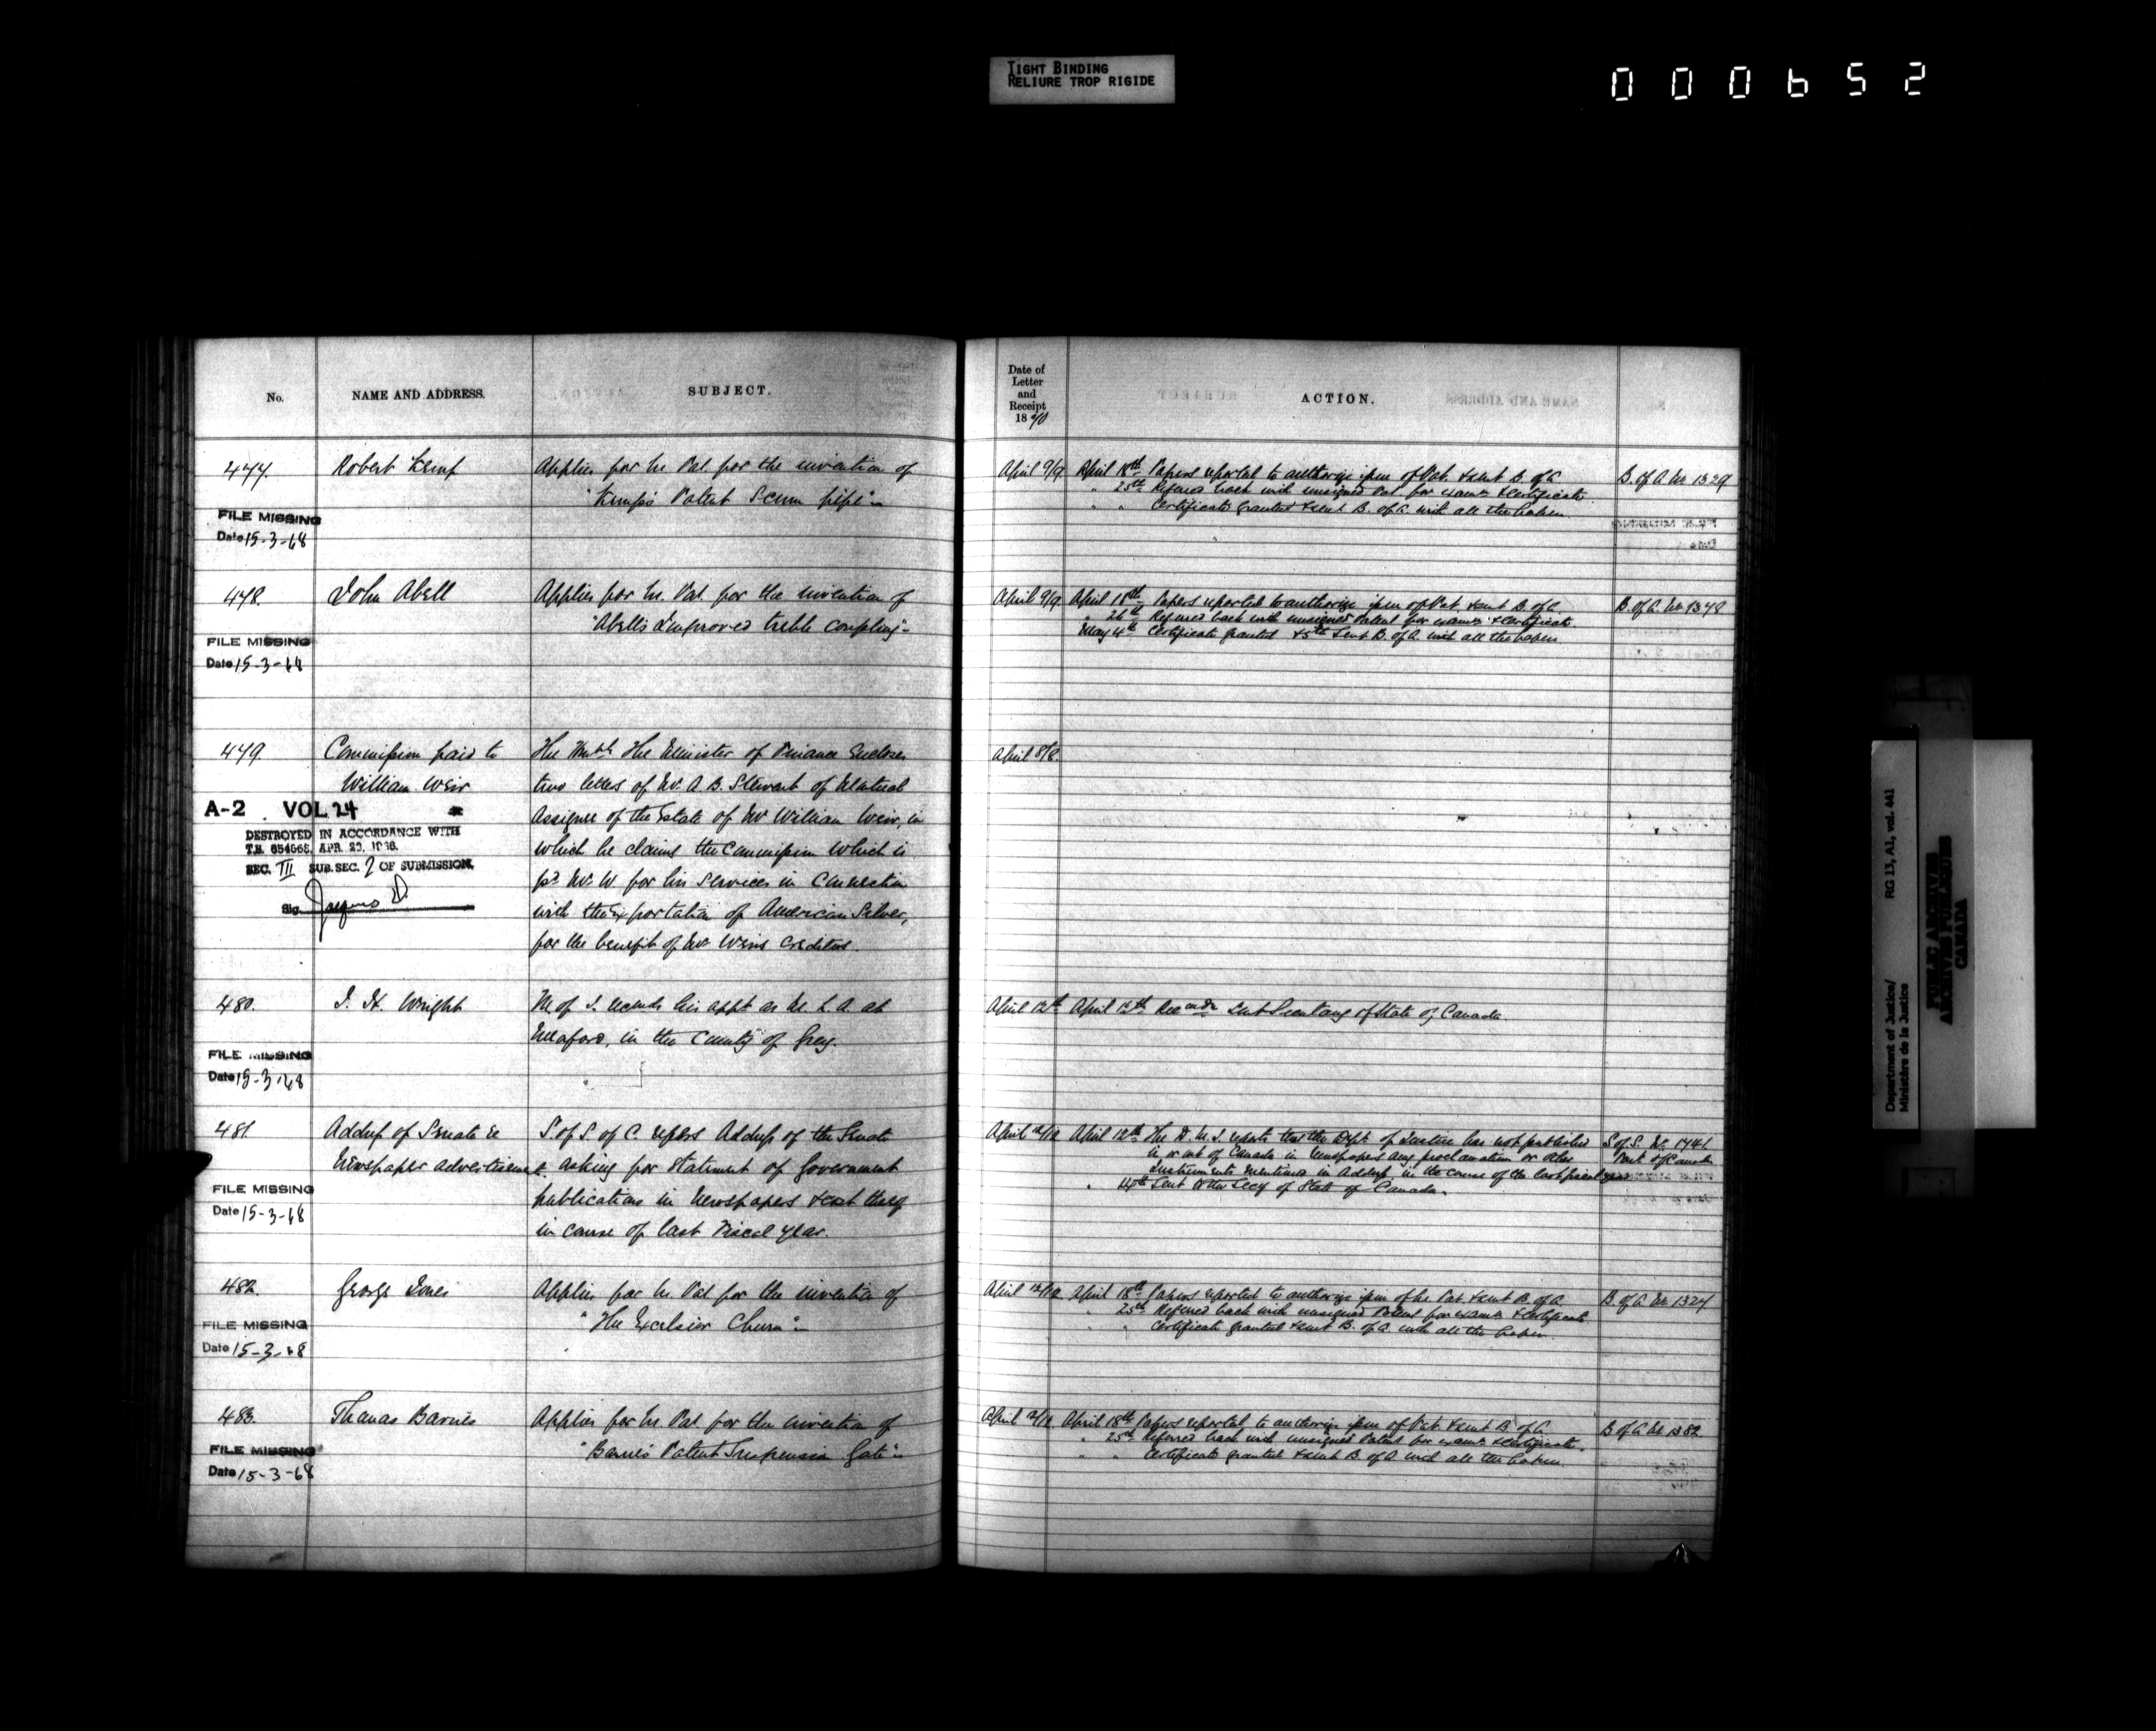 TIGHT BINDING
RELIURE TROP RIGIDE
000652
No.
NAME AND ADDRESS.
SUBJECT.
Date of
Letter
and
Receipt
1870
ACTION.
477.
Robert Kemp
Applies for In. Pat. for the invention of
"Kemp's Patent Scum pipe"
FILE MISSING
Date 15-3-68
April 9/9.
April 18th Papers reported to authorize issue of Pat. & sent B. of A.
" 25th Referred back with unsigned Pat. for exam. & certificate
" " Certificate granted & sent B. of A. with all the papers.
B. of A. No 1329
478.
John Abell
Applies for In. Pat. for the invention of
"Abell's Improved treble coupling"
FILE MISSING
Date 15-3-68
April 9/9.
April 18th Papers reported to authorize issue of Pat. & sent B. of A.
" 26th Referred back with unsigned Patent for exam. & certificate
May 4th Certificate granted & 5th sent B. of A. with all the papers.
B. of A. No 1348
479.
Commission paid to
William Weir
A-2 VOL 24
DESTROYED IN ACCORDANCE WITH
T.B. 654568, APR. 29,
SEC. III SUB. SEC. 7 OF SUBMISSION.
Sig.
The Honble The Minister of Finance Encloses
two letters of Mr. A. B. Stewart of Montreal
Assignee of the Estate of Mr William Weir, in
which he claims the Commission which is
pd Mr. W. for his Services in Connection
with the Exportation of American Silver,
for the benefit of Mr Weirs Creditors.
April 8/8.
480.
I. H. Wright
M. of J. recmds his appt as M. L. A. at
Meaford, in the County of Grey.
FILE MISSING
Date 15-3-68
April 12th
April 12th Recomdn Sent Secretary of State of Canada.
481.
Address of Senate re
Newspaper advertisements
S. of S. of C. refers Address of the Senate
asking for Statement of Government
publications in Newspapers & cost thereof
in course of last Fiscal year.
FILE MISSING
Date 15-3-68
April 12/12
April 12th The D. M. J. reports that the Dept. of Justice has not published
in or out of Canada in Newspapers any proclamation or other
Instruments mentioned in Address, in the course of the last fiscal year
" 14th Sent to the Secy of State of Canada.
S. of S. No. 1741
482.
George Jones
Applies for In. Pat for the invention of
"The Excelsior Churn"
FILE MISSING
Date 15-3-68
April 12/12
April 18th Papers reported to authorize issue of the Pat & sent B. of A.
" 25th Referred back with unsigned Patent for exam. & certificate
" " Certificate granted & sent B. of A. with all the papers.
B. of A. No 1327
483.
Thomas Barnes
Applies for In. Pat for the invention of
"Barnes Patent Suspension Gate"
FILE MISSING
Date 15-3-68
April 12/12.
April 18th Papers reported to authorize issue of Pat. & sent B. of A.
" 25th Referred back with unsigned Patent for exam. & certificate.
" " Certificate granted & sent B. of A with all the papers.
B of A. No 1382
Department of Justice/
Ministère de la Justice
RG 13, A1, vol. 441
PUBLIC ARCHIVES
ARCHIVES PUBLIQUES
CANADA